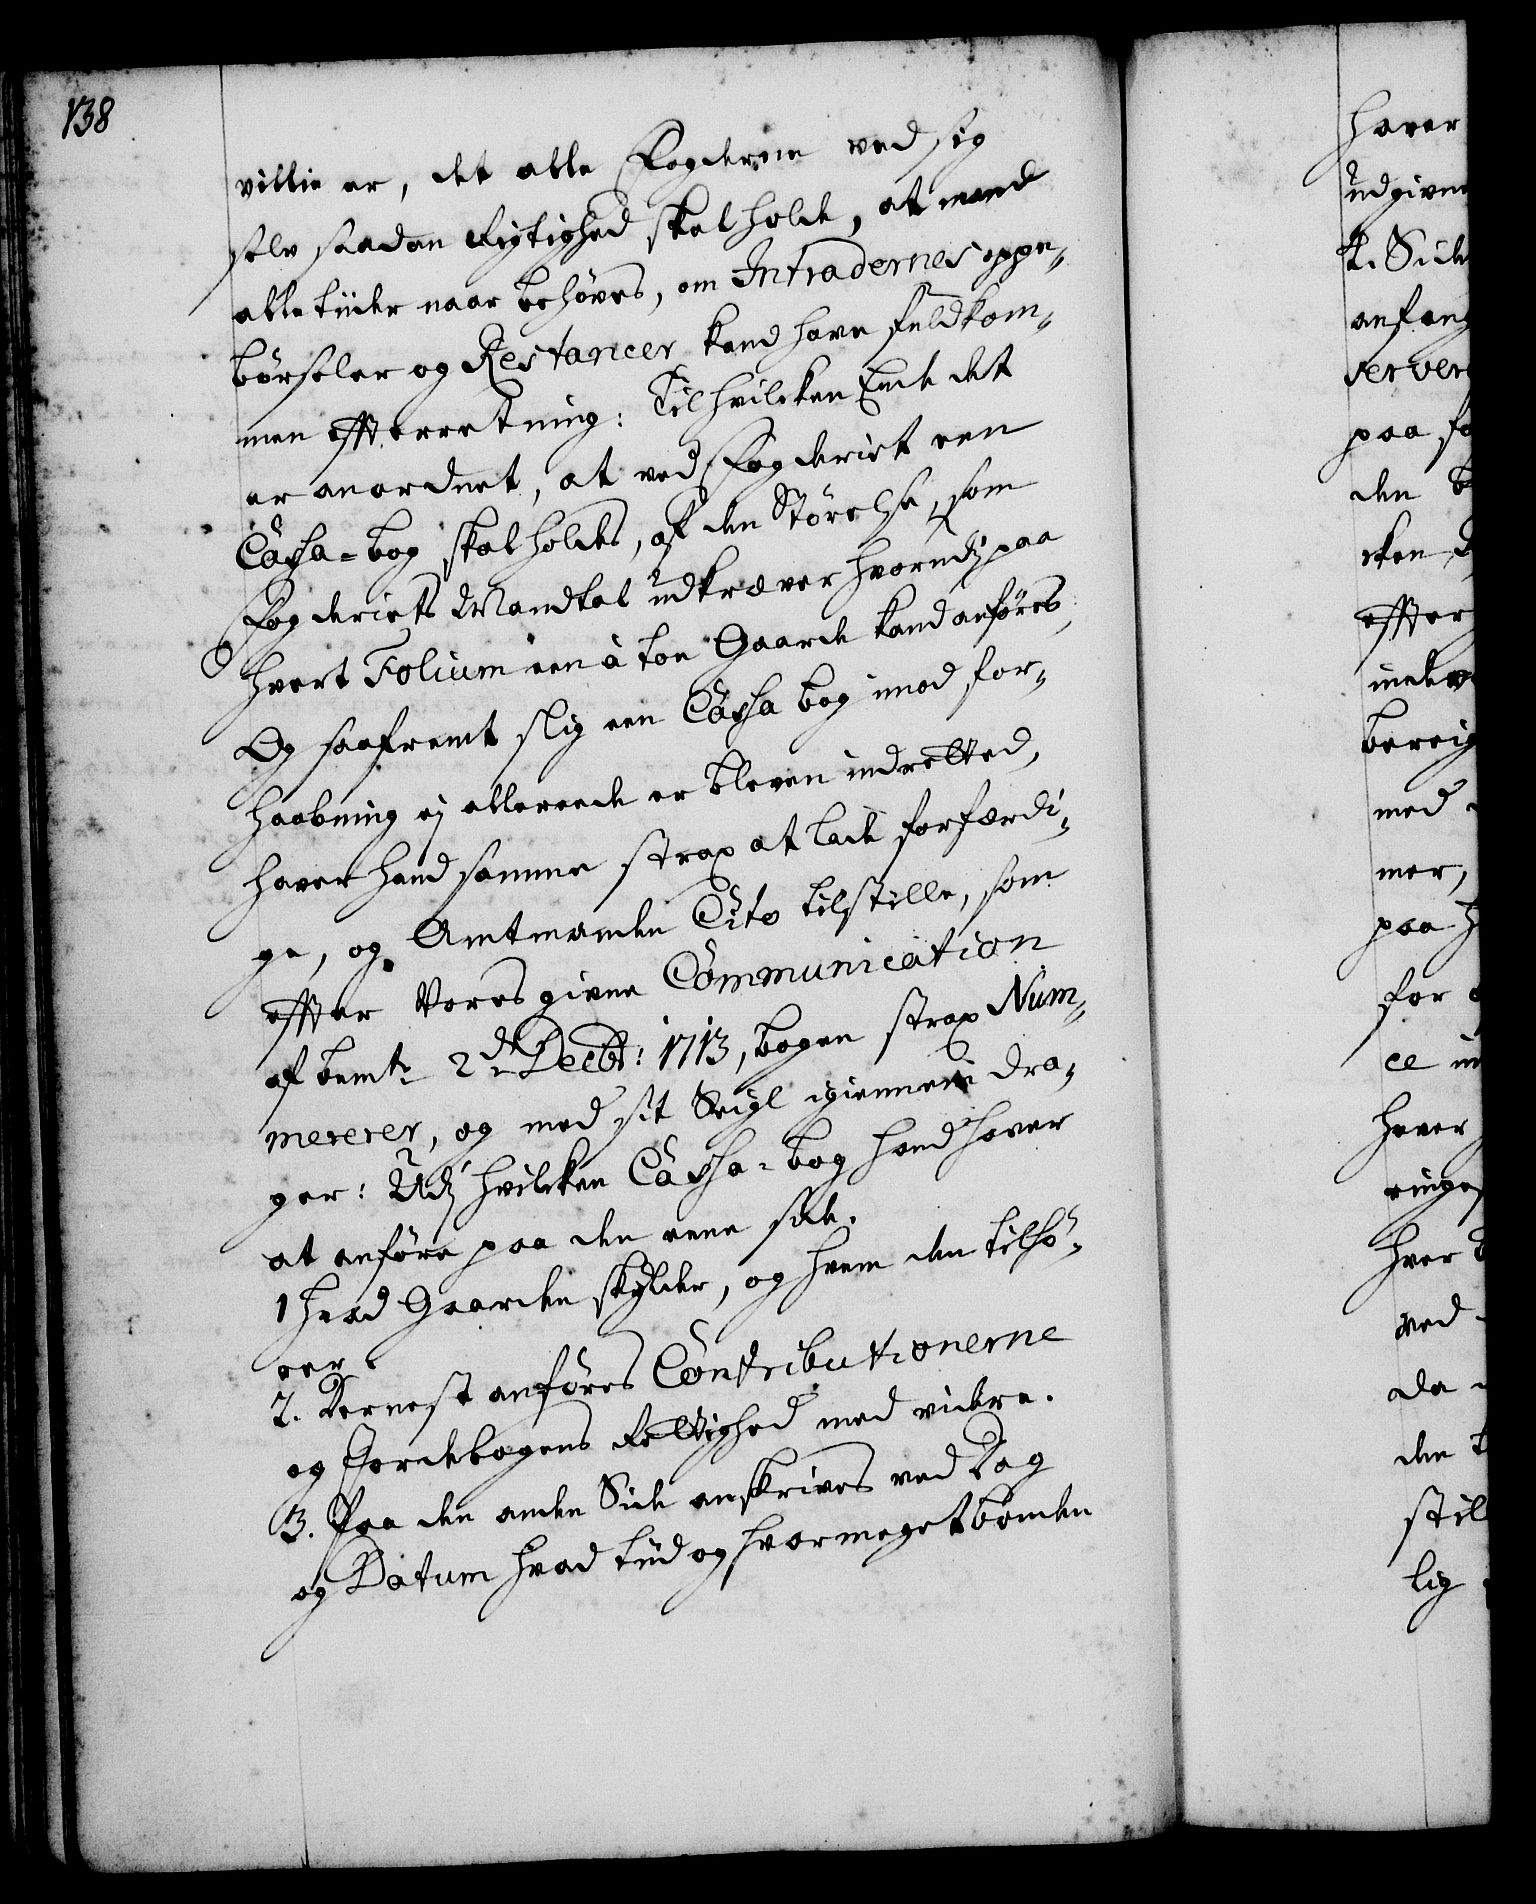 138
villie er, det alle Fogderne ved sig
selv saadan Rigtighed skal holde, at mand
alletiider naar behöves, om Intradernes oppe¬
börseler og Restancer kand have fuldkom¬
men effterretning: Til hvilcken Ende det
er anordnet, at ved Fogderiet een
Cassa-bog skal holdes, af den Störelse, som
Fogderiets Mandtal udkræver hvorudj paa
hvert Folium een à toe Gaarde kand anföres,
Og saafremt slig een Cassa bog imod for¬
haabning ej allereede er bleven indretted,
haver hand samme strax at lade forfærdi¬
ge, og Amtmanden Cito tilstille, som
effter Vores givne Communication
af bemte 2de Decbr: 1713, bogen strax Num¬
mererer, og med sit Seigl igiennem dra¬
ger: Udj hvilcken Cassa-bog hand haver
at anföre paa den eene side.
1 hvad Gaarden skylder, og hvem den tilhö¬
rer
2. Dernest anföres Contributionerne
og Jordebogens Rettighed med videre.
3. Paa den anden Side anskrives ved Dag
og Datum hvad tiid og hvormeget bonden
haver
udgivne
t. Side
anfang
server
paa fo
den
effter
indev
bereig
med
mer,
paa
for
ce in
haver
ringes
hver
ved
da
den
still
lig